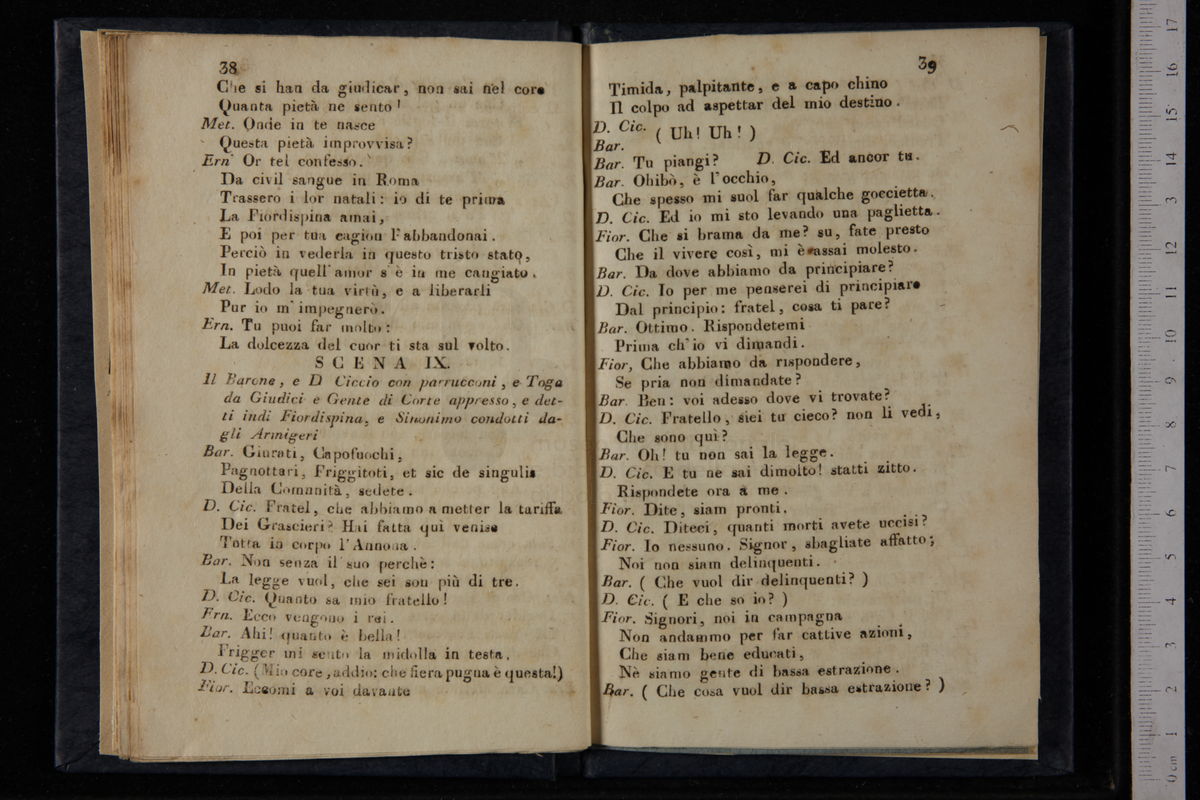 38
Che si han da giudicar, non sai nel core
Quanta pietà ne sento!
Met. Onde in te nasce
Questa pietà improvvisa?
Ern. Or tel confesso.
Da civil sangue in Roma
Trassero i lor natali: io di te prima
La Fiordispina amai,
E poi per tua cagion l'abbandonai.
Perciò in vederla in questo tristo stato,
In pietà quell'amor s'è in me cangiato.
Met. Lodo la tua virtù, e a liberarli
Pur io m'impegnerò.
Ern. Tu puoi far molto:
La dolcezza del cuor ti sta sul volto.
SCENA IX.
Il Barone, e D Ciccio con parrucconi, e Toga
da Giudici e Gente di Corte appresso, e det-
ti indi Fiordispina, e Sinonimo condotti da-
gli Armigeri
Bar. Giurati, Capofuochi,
Pagnottari, Friggitoti, et sic de singulis
Della Comunità, sedete.
D. Cic. Fratel, che abbiamo a metter la tariffa
Dei Grascieri? Hai fatta quì venise
Totta in corpo l'Annona.
Bar. Non senza il suo perchè:
La legge vuol, che sei son più di tre.
D. Cic. Quanto sa mio fratello!
Ern. Ecco vengono i rei.
Bar. Ahi! quanto è bella!
Frigger mi sento la midolla in testa.
D. Cic. (Mio core, addio: che fiera pugna è questa!)
Fior. Eccomi a voi davante
39
Timida, palpitante, e a capo chino
Il colpo ad aspettar del mio destino.
D. Cic. ( Uh! Uh! )
Bar.
Bar. Tu piangi? D. Cic. Ed ancor tu.
Bar. Ohibò, è l'occhio,
Che spesso mi suol far qualche goccietta.
D. Cic. Ed io mi sto levando una paglietta.
Fior. Che si brama da me? su, fate presto
Che il vivere così, mi è assai molesto.
Bar. Da dove abbiamo da principiare?
D. Cic. Io per me penserei di principiare
Dal principio: fratel, cosa ti pare?
Bar. Ottimo. Rispondetemi
Prima ch'io vi dimandi.
Fior, Che abbiamo da rispondere,
Se pria non dimandate?
Bar. Ben: voi adesso dove vi trovate?
D. Cic. Fratello, siei tu cieco? non li vedi,
Che sono quì?
Bar. Oh! tu non sai la legge.
D. Cic. E tu ne sai dimolto! statti zitto.
Rispondete ora a me.
Fior. Dite, siam pronti.
D. Cic. Diteci, quanti morti avete uccisi?
Fior. Io nessuno. Signor, sbagliate affatto;
Noi non siam delinquenti.
Bar. ( Che vuol dir delinquenti? )
D. Cic. ( E che so io? )
Fior. Signori, noi in campagna
Non andammo per far cattive azioni,
Che siam bene educati,
Nè siamo gente di bassa estrazione.
Bar. ( Che cosa vuol dir bassa estrazione? )
0 cm 1 2 3 4 5 6 7 8 9 10 11 12 13 14 15 16 17